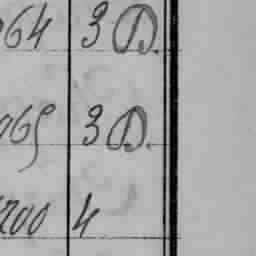 064 3 D.
065 3 D.
200 4